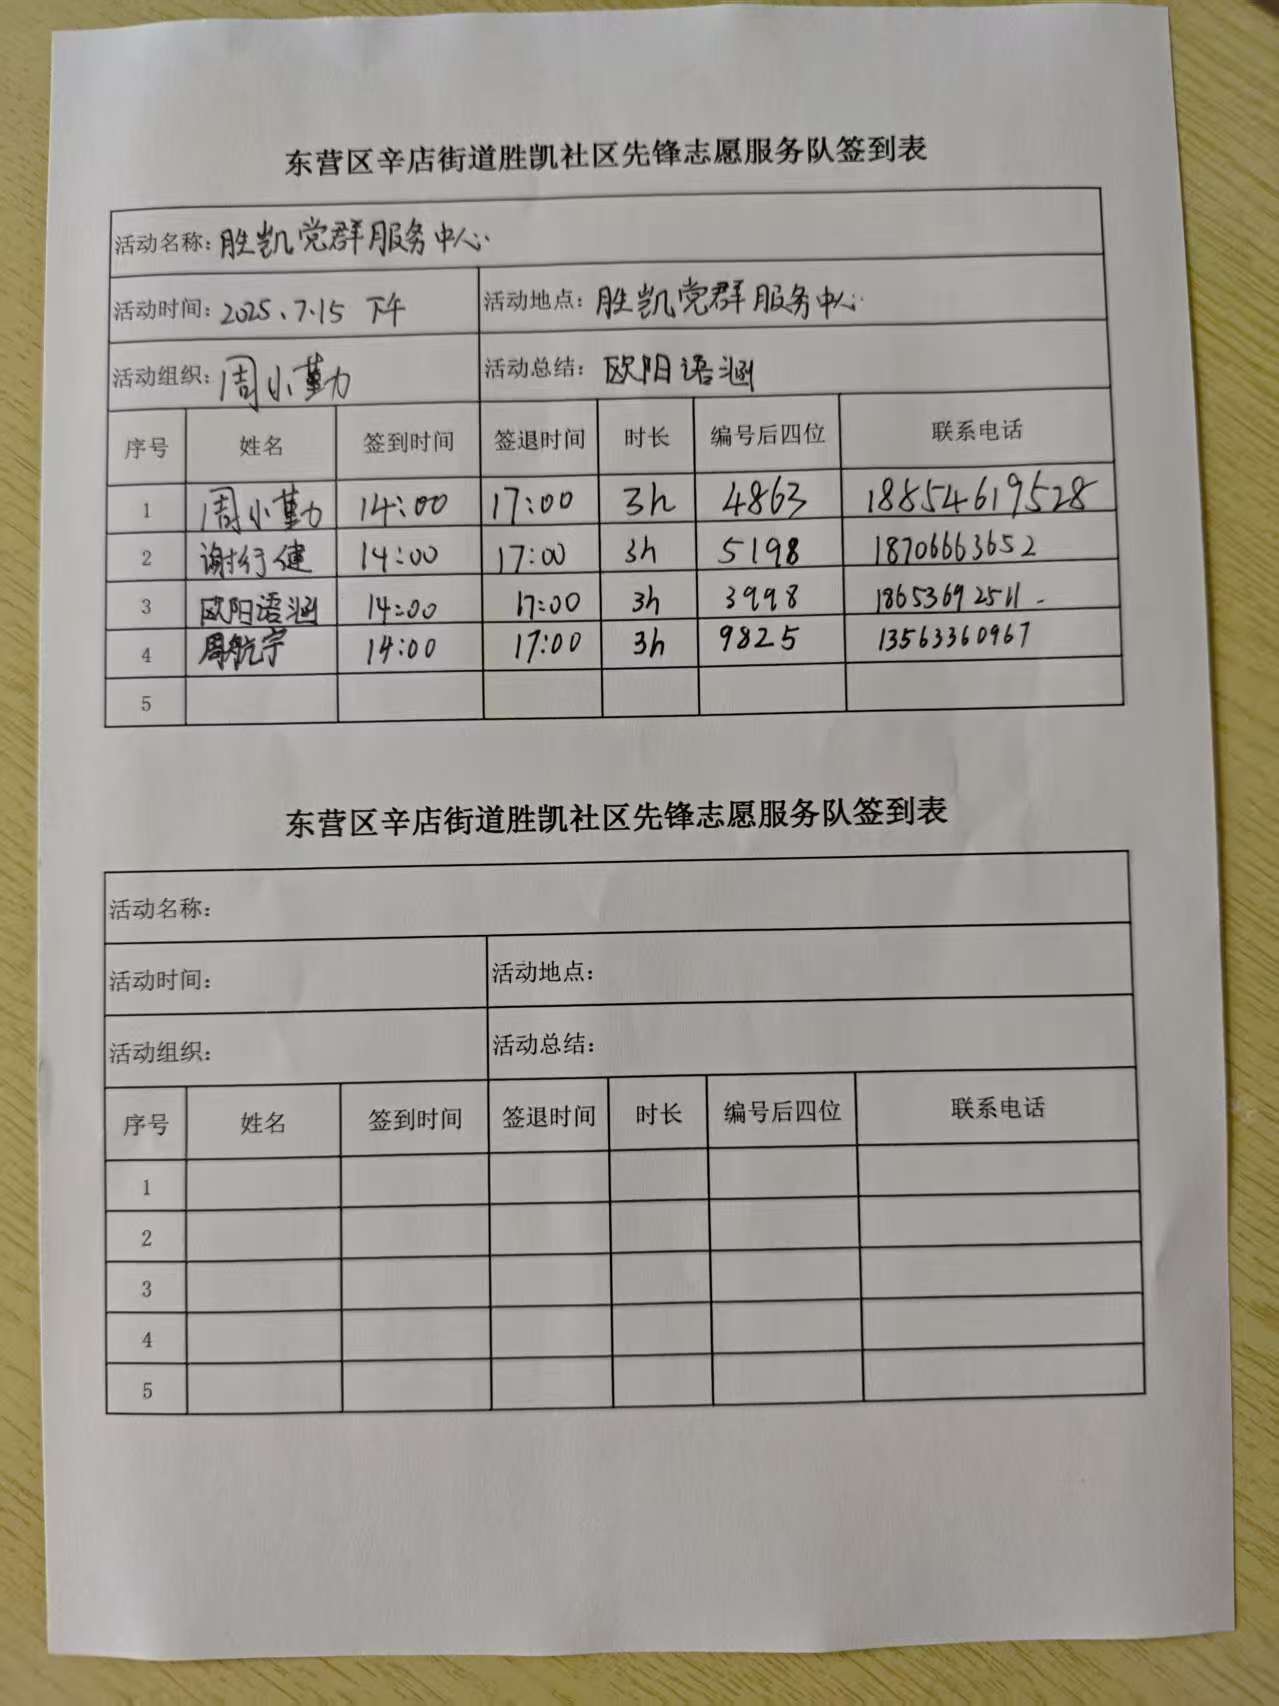 东营区辛店街道胜凯社区先锋志愿服务队签到表
活动名称：胜凯党群服务中心.
活动时间：2025、7.15 下午 活动地点：胜凯党群服务中心.
活动组织：周小勤 活动总结：欧阳语涵
序号 姓名 签到时间 签退时间 时长 编号后四位 联系电话
1 周小勤 14:00 17:00 3h 4863 18854619528
2 谢行健 14:00 17:00 3h 5198 18706663652
3 欧阳语涵 14:00 17:00 3h 3998 18653692511.
4 周航宇 14:00 17:00 3h 9825 13563360967
5
东营区辛店街道胜凯社区先锋志愿服务队签到表
活动名称：
活动时间： 活动地点：
活动组织： 活动总结：
序号 姓名 签到时间 签退时间 时长 编号后四位 联系电话
1
2
3
4
5